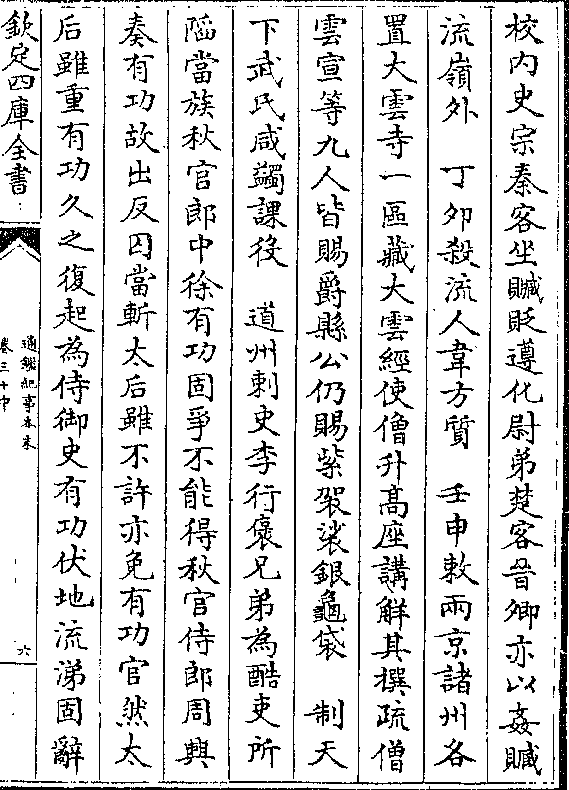 校内史宗秦客坐贓貶遵化尉弟楚客晉卿亦以姦贓
流嶺外　丁卯殺流人韋方質　壬申敕兩京諸州各
置大雲寺一區藏大雲經使僧升髙座講解其撰疏僧
雲宣等九人皆賜爵縣公仍賜紫袈裟銀龜袋　制天
下武氏咸蠲課役　道州刺史李行褒兄弟為酷吏所
陷當族秋官郎中徐有功固爭不能得秋官侍郎周興
奏有功故出反囚當斬太后雖不許亦免有功官然太
后雖重有功久之復起為侍御史有功伏地流涕固辭
欽定四庫全書
通鑑紀事本末
卷三十中
六